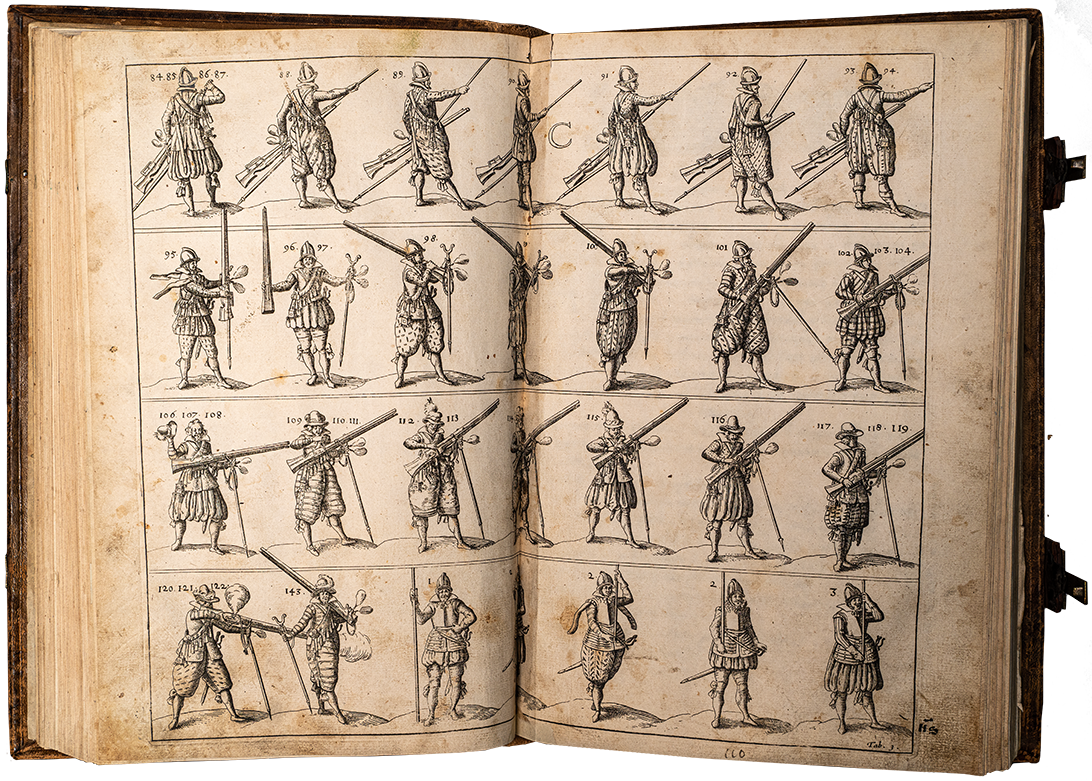 84. 85. 86. 87. 88. 89. 90. 91. 92. 93. 94.
C
95. 96. 97. 98. 101. 102. 103. 104.
106. 107. 108. 109. 110. 111. 112. 113. 115. 116. 117. 118. 119.
120. 121. 122. 143. 1. 2. 2. 3.
Tab. 3.